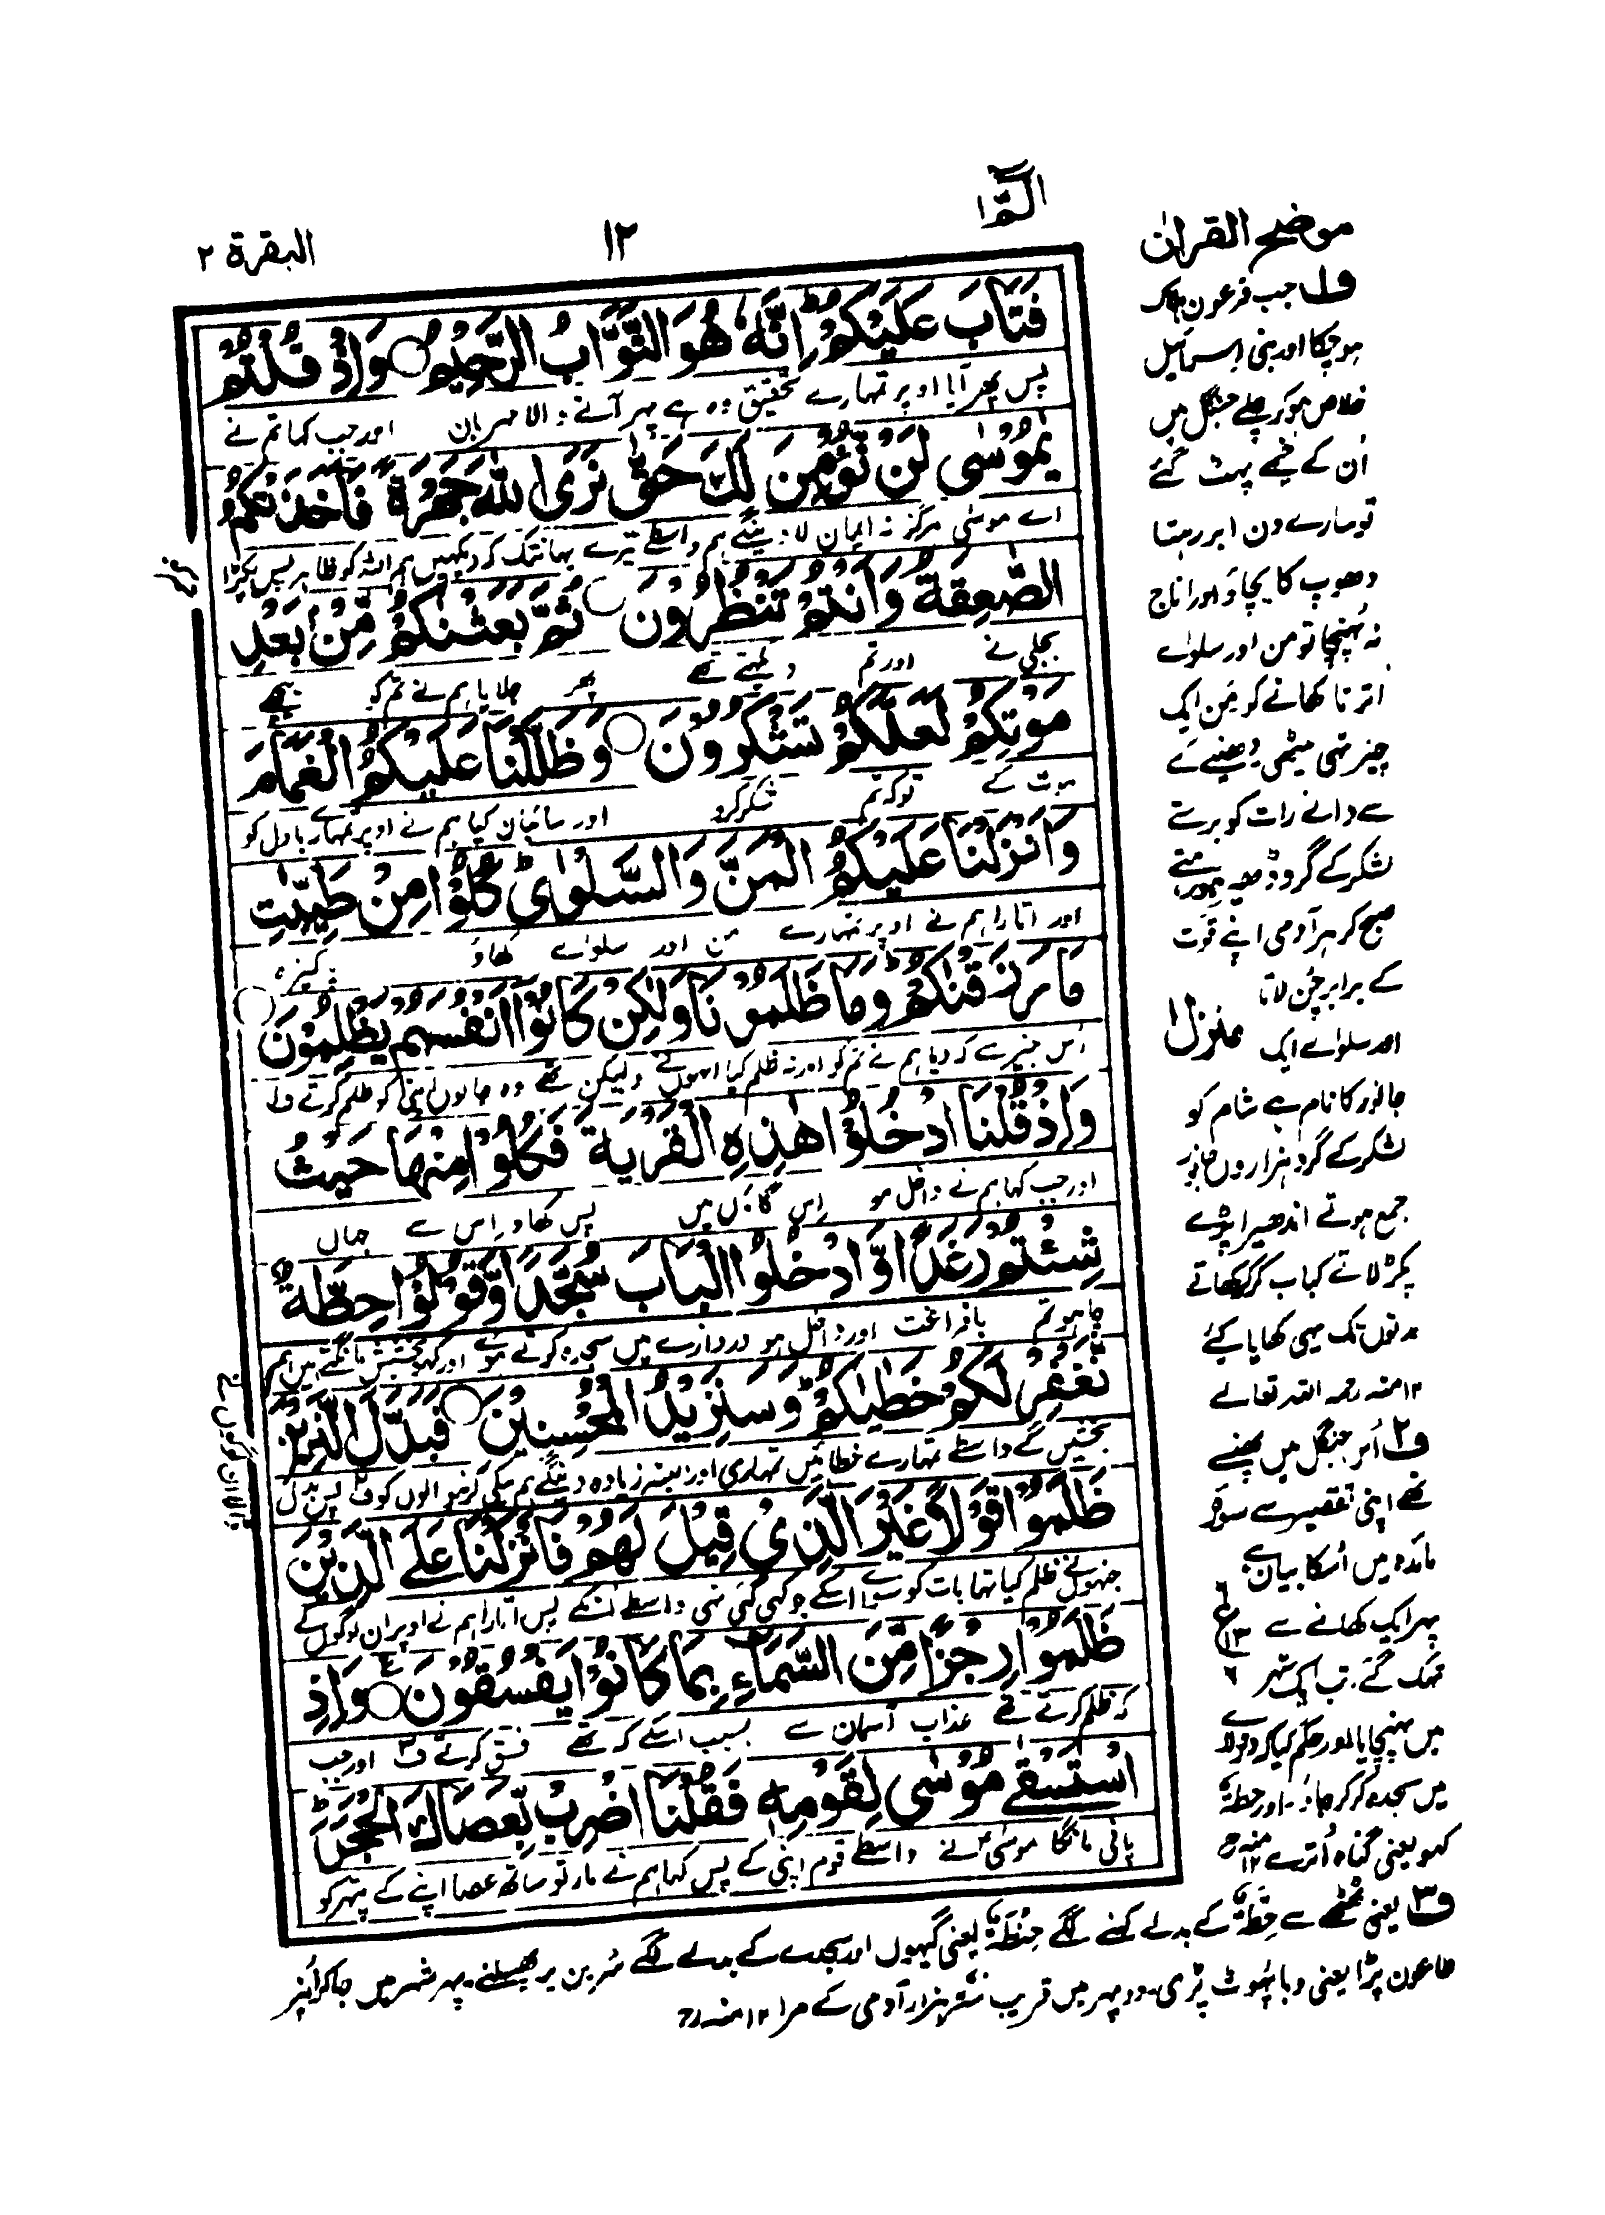 الٓمّٓ ١
١٢
البقرة ٢
فَتَابَ عَلَيْكُمْ ؕ اِنَّهٗ هُوَ التَّوَّابُ الرَّحِيْمُ ○ وَاِذْ قُلْتُمْ
پس پھر آیا اوپر تمہارے تحقیق وہ ہے پھر آنے والا مہربان اور جب کہا تم نے
يٰمُوْسٰى لَنْ نُّؤْمِنَ لَكَ حَتّٰى نَرَى اللّٰهَ جَهْرَةً فَاَخَذَتْكُمُ
اے موسٰی ہرگز نہ ایمان لاوینگے ہم واسطے تیرے یہانتک کہ دیکھیں ہم اللہ کو ظاہر پس پکڑا
الصّٰعِقَةُ وَاَنْتُمْ تَنْظُرُوْنَ ○ ثُمَّ بَعَثْنٰكُمْ مِّنْۢ بَعْدِ
بجلی نے اور تم دیکھتے تھے پھر جلایا ہم نے تم کو پیچھے
مَوْتِكُمْ لَعَلَّكُمْ تَشْكُرُوْنَ ○ وَظَلَّلْنَا عَلَيْكُمُ الْغَمَامَ
موت کے توکہ تم شکر کرو اور سائبان کیا ہم نے اوپر تمہارے بادل کو
وَاَنْزَلْنَا عَلَيْكُمُ الْمَنَّ وَالسَّلْوٰى ؕ كُلُوْا مِنْ طَيِّبٰتِ
اور اتارا ہم نے اوپر تمہارے من اور سلوٰے کھاؤ پاکیزہ
مَا رَزَقْنٰكُمْ ؕ وَمَا ظَلَمُوْنَا وَلٰكِنْ كَانُوْٓا اَنْفُسَهُمْ يَظْلِمُوْنَ ○
اس چیز سے کہ دیا ہم نے تم کو اور نہ ظلم کیا انہوں نے ولیکن تھے وہ جانوں اپنی کو ظلم کرتے ف۱
وَاِذْ قُلْنَا ادْخُلُوْا هٰذِهِ الْقَرْيَةَ فَكُلُوْا مِنْهَا حَيْثُ
اور جب کہا ہم نے داخل ہو اِس گاؤں میں پس کھاؤ اِس سے جہاں
شِئْتُمْ رَغَدًا وَّادْخُلُوا الْبَابَ سُجَّدًا وَّقُوْلُوْا حِطَّةٌ
چاہو تم بافراغت اور داخل ہو دروازے میں سجدہ کرتے ہوئے اور کہو بخشش مانگتے ہیں ہم
نَّغْفِرْ لَكُمْ خَطٰيٰكُمْ ؕ وَسَنَزِيْدُ الْمُحْسِنِيْنَ ○ فَبَدَّلَ الَّذِيْنَ
بخشیں گے واسطے تمہارے خطائیں تمہاری اور البتہ زیادہ دینگے ہم نیکی کرنیوالوں کو ف۲ پس بدل
ظَلَمُوْا قَوْلًا غَيْرَ الَّذِيْ قِيْلَ لَهُمْ فَاَنْزَلْنَا عَلَى الَّذِيْنَ
جنہوں نے ظلم کیا تھا بات کو سوا اسکے جو کہی گئی تھی واسطے انکے پس اتارا ہم نے اوپر ان لوگوں کے
ظَلَمُوْا رِجْزًا مِّنَ السَّمَآءِ بِمَا كَانُوْا يَفْسُقُوْنَ ○ وَاِذِ
کہ ظلم کرتے تھے عذاب آسمان سے بسبب اسکے کہ تھے فسق کرتے ف۳ اور جب
اسْتَسْقٰى مُوْسٰى لِقَوْمِهٖ فَقُلْنَا اضْرِبْ بِّعَصَاكَ الْحَجَرَ ؕ
پانی مانگا موسٰی نے واسطے قوم اپنی کے پس کہا ہم نے مار تو ساتھ عصا اپنے کے پتھر کو
موضح القرآن
ف۱ جب فرعون ہلاک
ہو چکا اور بنی اسرائیل
خلاص ہو کر چلے جنگل میں
اُن کے خیمے پھٹ گئے
تو سارے دن ابر رہتا
دھوپ کا بچاؤ اور اناج
نہ پہنچا تو من اور سلوٰے
اترتا کھانے کو مَن ایک
چیز تھی میٹھی دھنیے کے
سے دانے رات کو برستے
لشکر کے گرد ڈھیر ہو رہتے
صبح کو ہر آدمی اپنے قوت
کے برابر چُن لاتا
منزل ١
اور سلوٰے ایک
جانور کا نام ہے شام کو
لشکر کے گرد ہزاروں جانور
جمع ہوتے اندھیرا پڑے
پکڑ لاتے کباب کر کر کھاتے
مدتوں تک یہی کھایا کئے
۱۲ منہ رحمہ اللہ تعالے
ف۲ اُس جنگل میں پھنسے
تھے اپنی تقصیر سے سورۂ
مائدہ میں اُسکا بیان ہے
پھر ایک کھانے سے
تھک گئے تب ایک شہر
میں پہنچایا اور حکم کیا کہ دروازے
میں سجدہ کر کر جاؤ۔ اور حطۃ
کہو یعنی گناہ اُترے ۱۲ منہ رح
ف۳ یعنی ٹھٹھے سے حِطَّۃٌ کے بدلے کہنے لگے حِنْطَۃٌ یعنی گیہوں اور سجدے کے بدلے لگے سُرین پر پھسلنے۔ پھر شہر میں جا کر اُنپر
طاعون پڑا یعنی وبا پھُوٹ پڑی۔ دوپہر میں قریب ستر ہزار آدمی کے مرا ۱۲ منہ رح